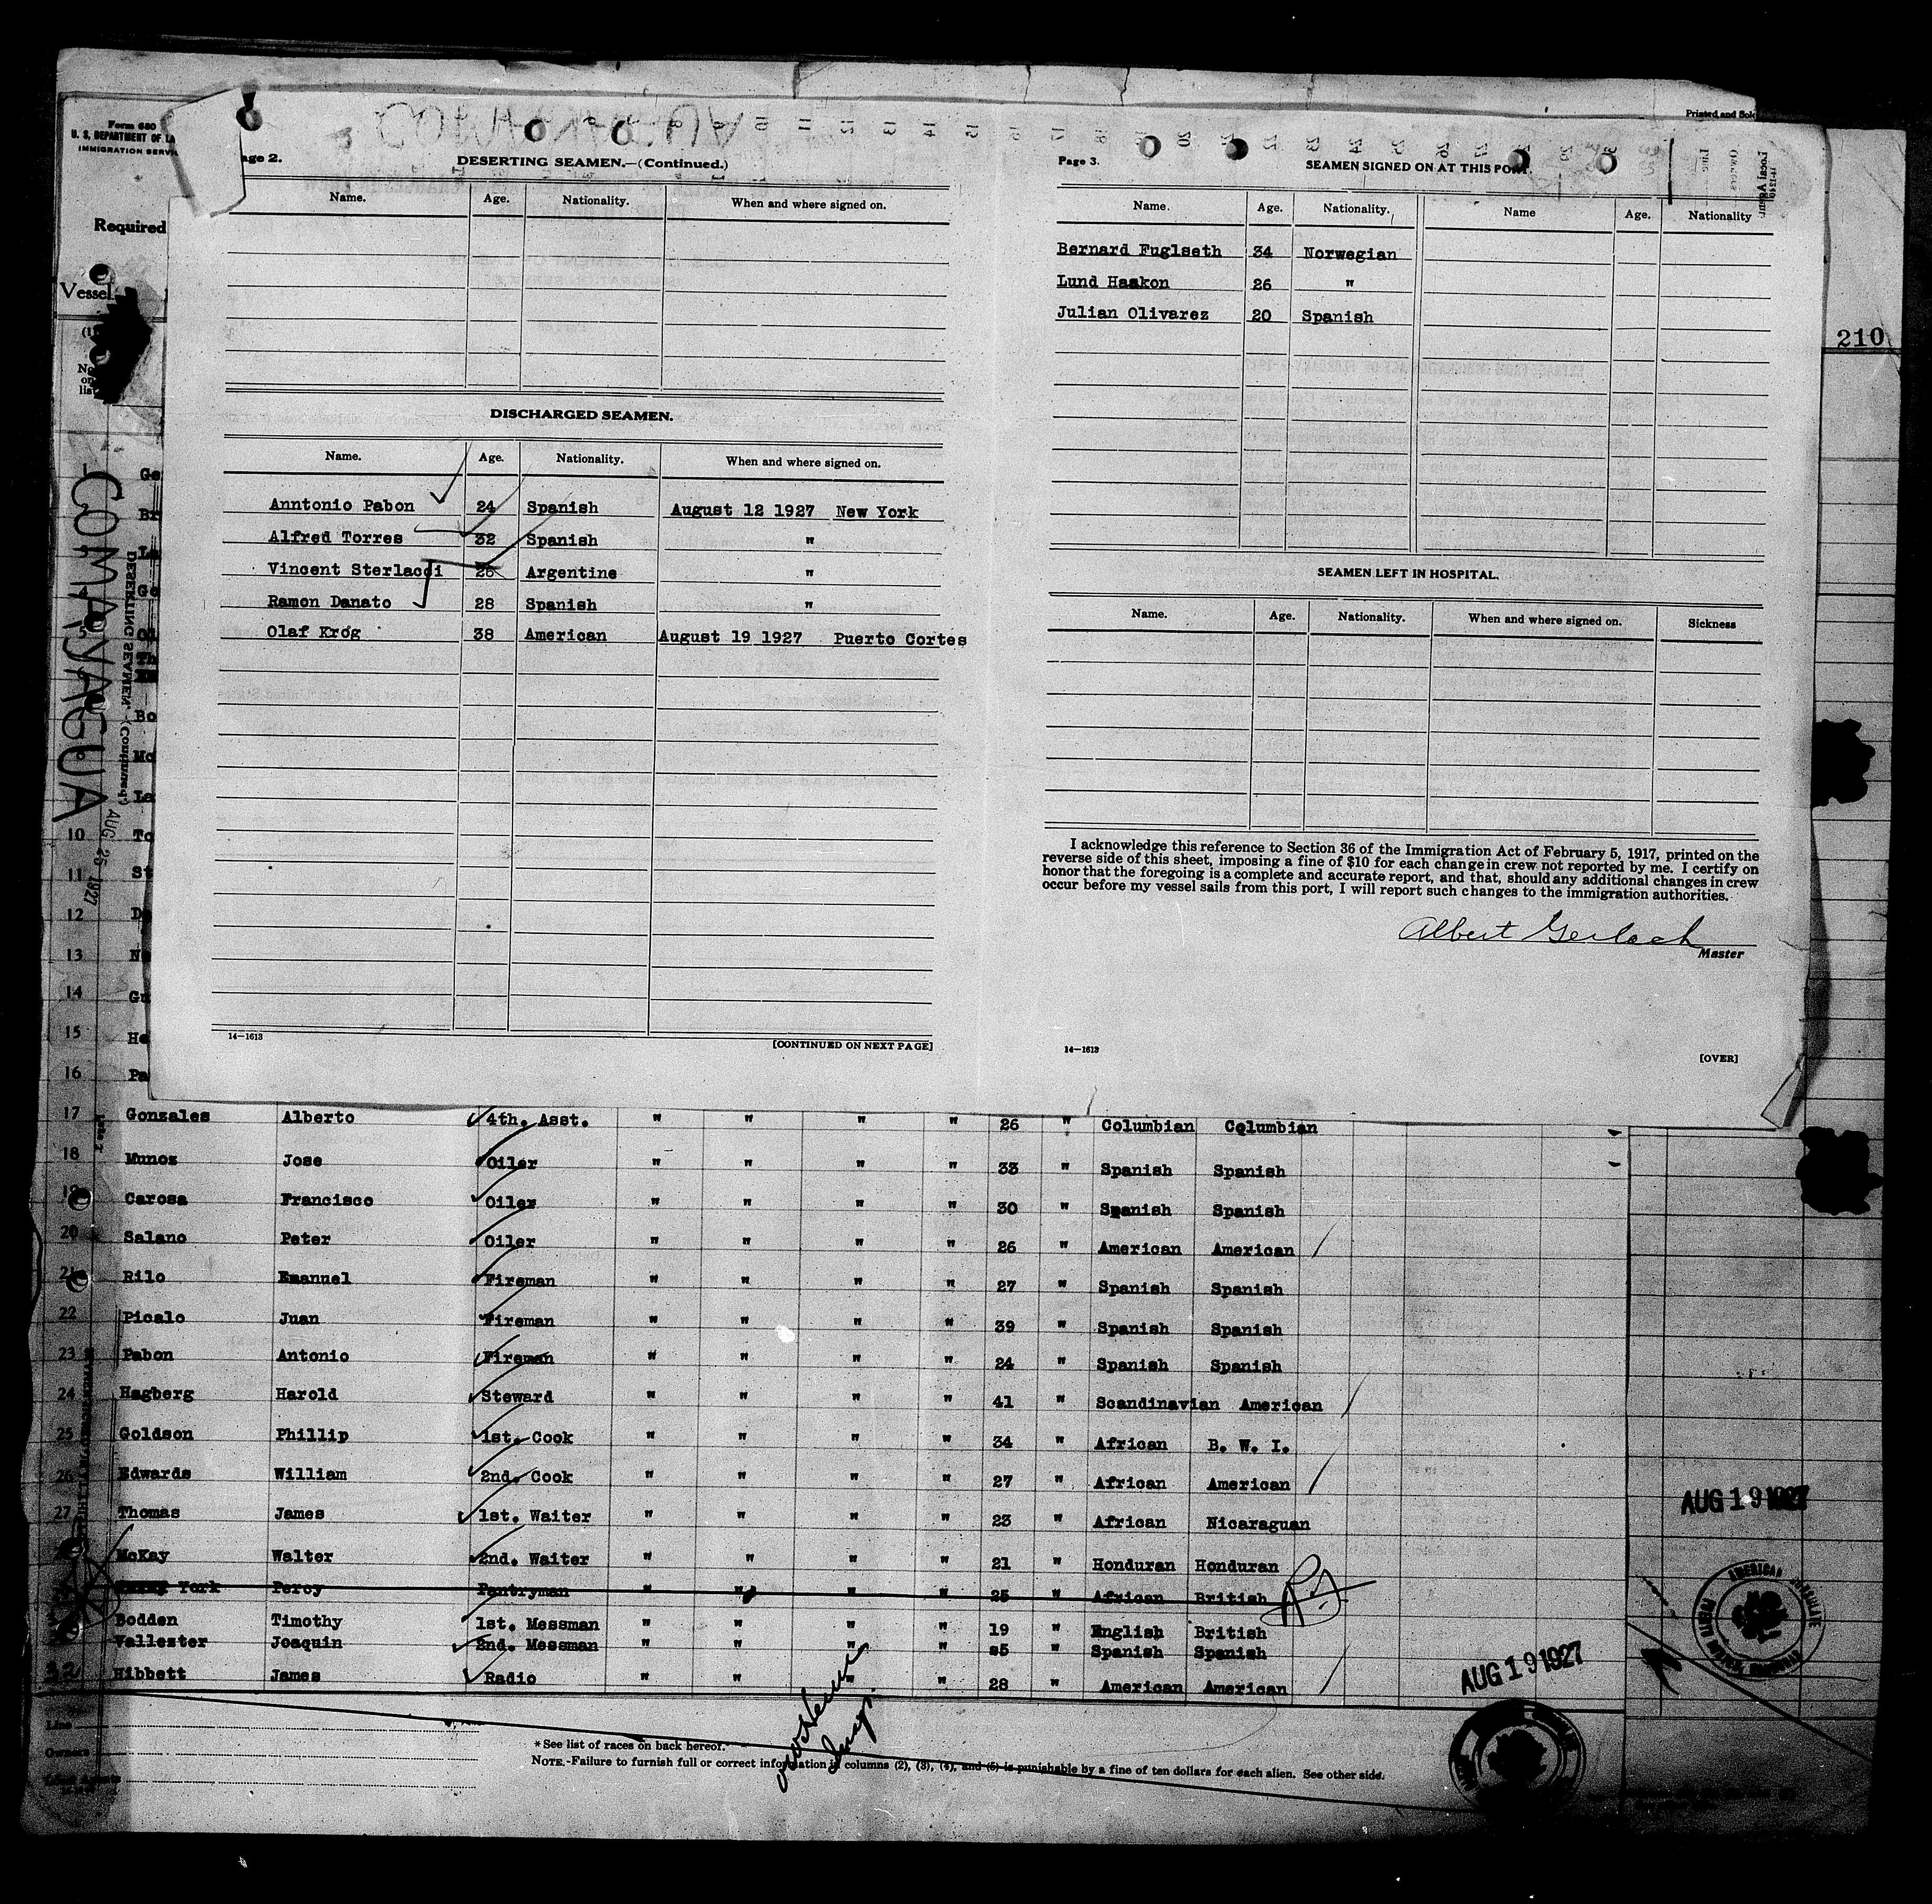 Form 680
U. S. DEPARTMENT OF LA
IMMIGRATION SERVI
Required
Vessel
COMAYAGUA
Printed and Sold
210
Page 2.
DESERTING SEAMEN.—(Continued.)
Name. Age. Nationality. When and where signed on.
DISCHARGED SEAMEN.
Name. Age. Nationality. When and where signed on.
Anntonio Pabon 24 Spanish August 12 1927 New York
Alfred Torres 32 Spanish "
Vincent Sterlacci 26 Argentine "
Ramon Danato 28 Spanish "
Olaf Krog 38 American August 19 1927 Puerto Cortes
14—1613
[CONTINUED ON NEXT PAGE]
Page 3.
SEAMEN SIGNED ON AT THIS PORT.
Name. Age. Nationality. Name Age. Nationality
Bernard Fuglseth 34 Norwegian
Lund Haakon 26 "
Julian Olivarez 20 Spanish
SEAMEN LEFT IN HOSPITAL.
Name. Age. Nationality. When and where signed on. Sickness
I acknowledge this reference to Section 36 of the Immigration Act of February 5, 1917, printed on the
reverse side of this sheet, imposing a fine of $10 for each change in crew not reported by me. I certify on
honor that the foregoing is a complete and accurate report, and that, should any additional changes in crew
occur before my vessel sails from this port, I will report such changes to the immigration authorities.
Albert Gerlach
Master
14—1613
[OVER]
COMAYAGUA
AUG 25 1927
DESERTING SEAMEN.—(Continued.)
Ge
Br
La
Ge
Ol
Th
Bo
Mc
La
10 To
11 St
12 De
13 Na
14 Gu
15 He
16 Pa
17 Gonzales Alberto 4th. Asst. " " " " 26 " Columbian Columbian
18 Munoz Jose Oiler " " " " 33 " Spanish Spanish
19 Carosa Francisco Oiler " " " " 30 " Spanish Spanish
20 Salano Peter Oiler " " " " 26 " American American
21 Rilo Emanuel Fireman " " " " 27 " Spanish Spanish
22 Picalo Juan Fireman " " " " 39 " Spanish Spanish
23 Pabon Antonio Fireman " " " " 24 " Spanish Spanish
24 Hagberg Harold Steward " " " " 41 " Scandinavian American
25 Goldson Phillip 1st. Cook " " " " 34 " African B. W. I.
26 Edwards William 2nd. Cook " " " " 27 " African American
27 Thomas James 1st. Waiter " " " " 23 " African Nicaraguan
McKay Walter 2nd. Waiter " " " " 21 " Honduran Honduran
York Percy Pantryman " " " " 25 " African British
Bodden Timothy 1st. Messman " " " " 19 " English British
Vallester Joaquin 2nd. Messman " " " " 25 " Spanish Spanish
32 Hibbett James Radio " " " " 28 " American American
AUG 19 1927
AUG 19 1927
Line
Owners
Local Agents
* See list of races on back hereof.
NOTE.-Failure to furnish full or correct information in columns (2), (3), (4), and (5) is punishable by a fine of ten dollars for each alien. See other side.